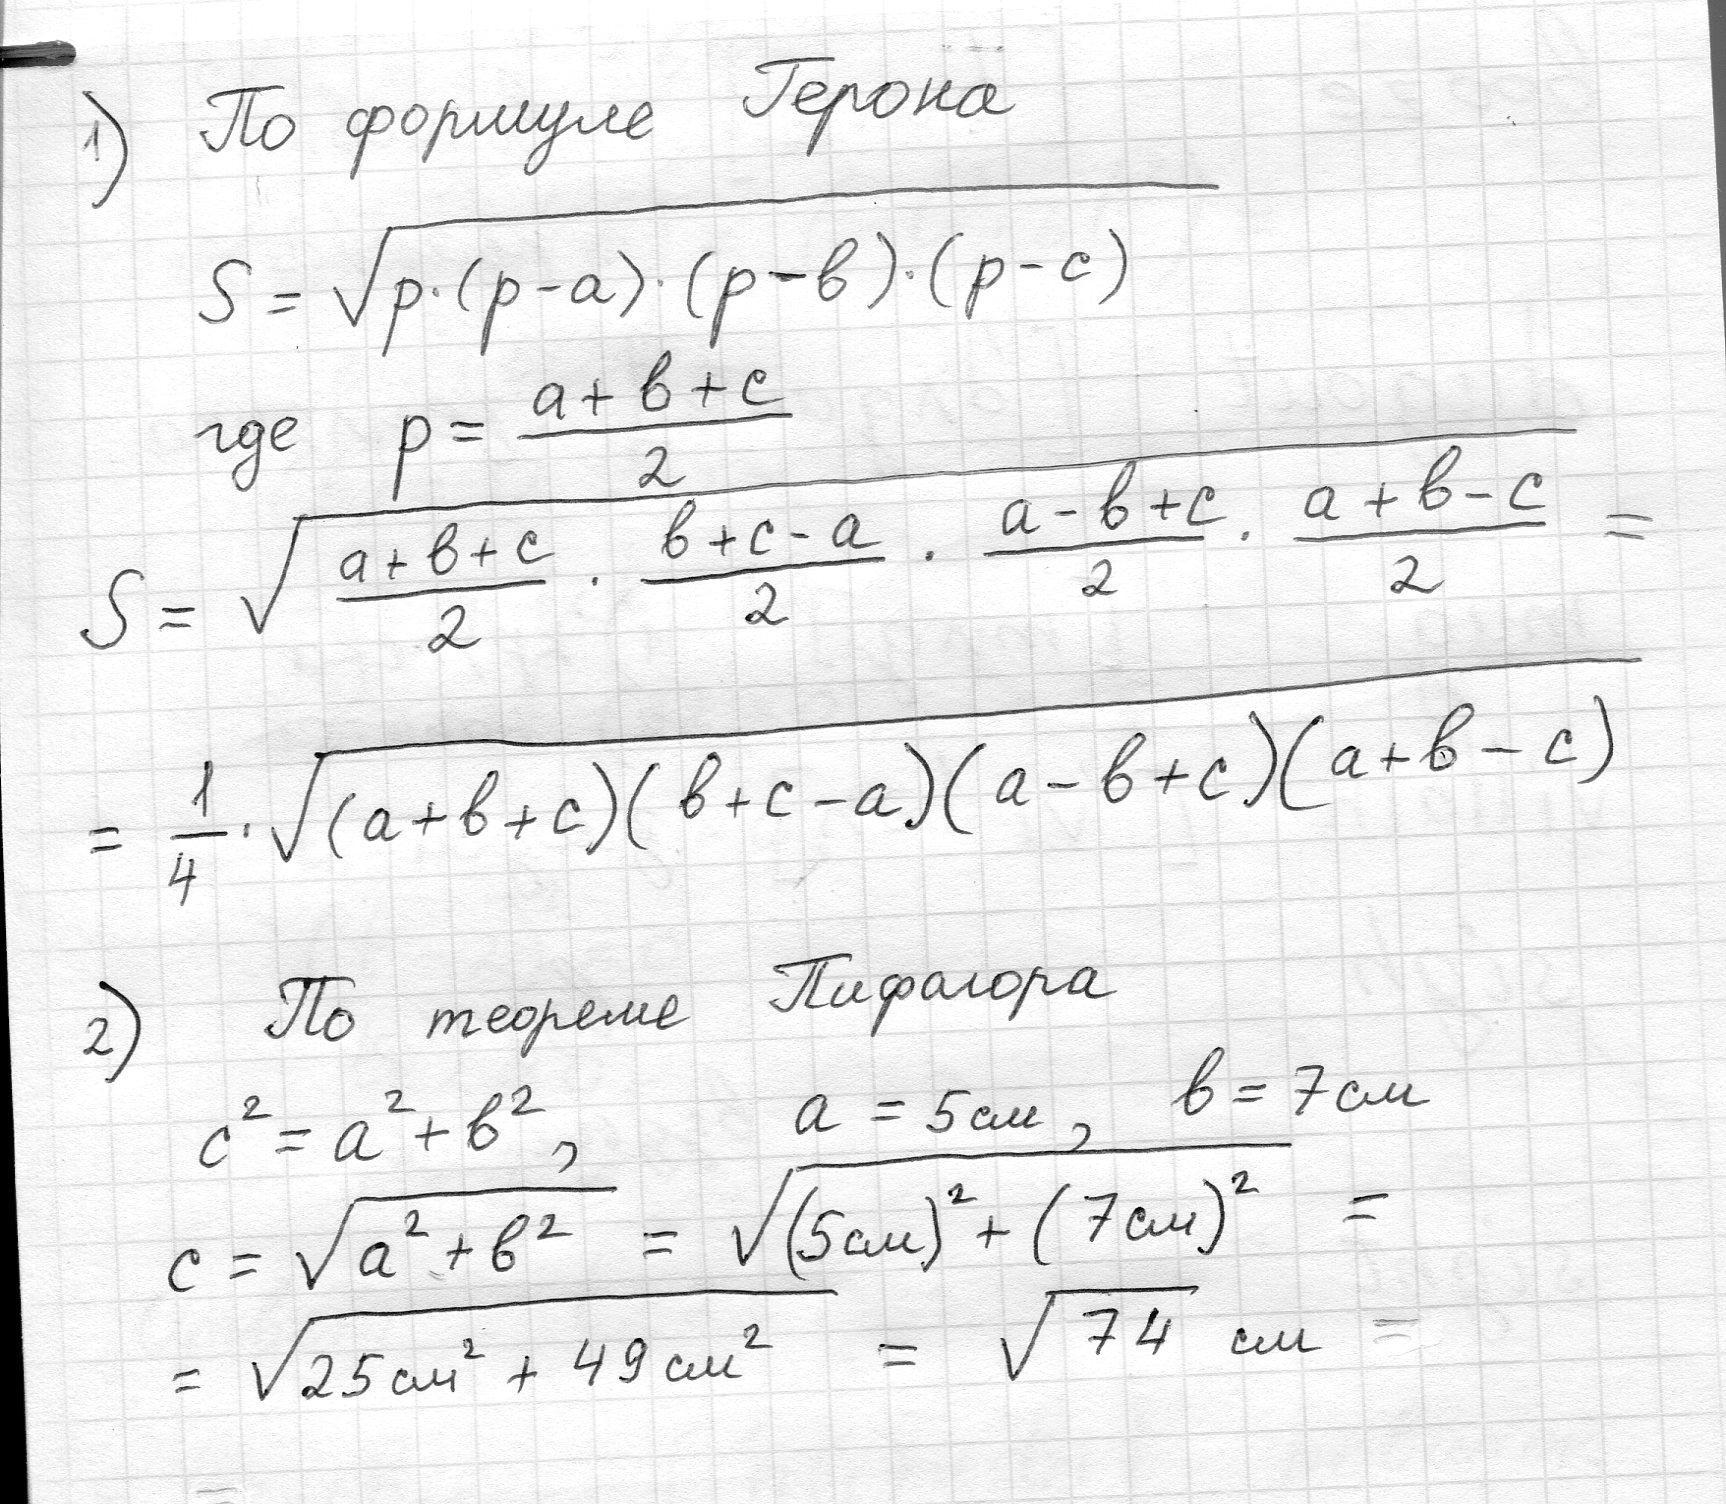 1) По формуле Герона
S = √(p·(p-a)·(p-в)·(p-c))
где p = (a+в+c)/2
S = √((a+в+c)/2 · (в+c-a)/2 · (a-в+c)/2 · (a+в-c)/2) =
= 1/4 · √((a+в+c)(в+c-a)(a-в+c)(a+в-c))
2) По теореме Пифагора
c² = a² + в², a = 5см, в = 7см
c = √(a² + в²) = √((5см)² + (7см)²) =
= √(25см² + 49см²) = √74 см =